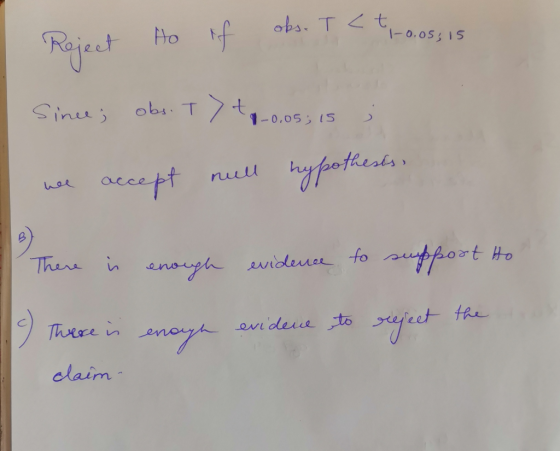 Reject Ho if obs. T < t1-0.05; 15
Since; obs. T > t1-0.05; 15 ;
we accept null hypothesis.
B)
There is enough evidence to support Ho
C) There is enough evidence to reject the
claim.